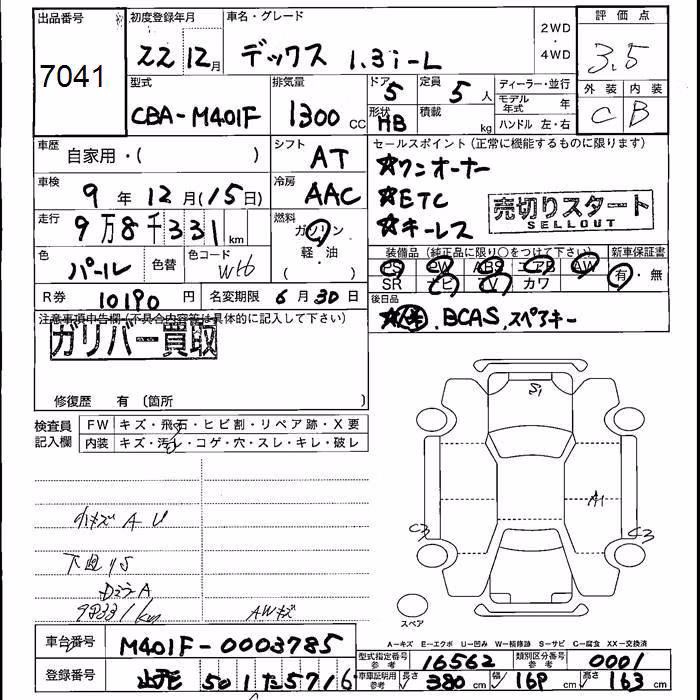 出品番号
7041
初度登録年月
22 12月
車名・グレード
デックス 1.3i-L
2WD
・
4WD
評価点
3.5
外装 内装
C B
型式
CBA-M401F
排気量
1300 CC
ドア 5
形状 HB
定員 5 人
積載 kg
ディーラー・並行
モデル年式 年
ハンドル 左・右
車歴
自家用・( )
シフト
AT
車検
9年12月(15日)
冷房
AAC
走行
9万8千331 km
燃料
ガソリン
軽・油
( )
色
パール
色替
色コード
W16
R券 10190 円
名変期限 6月30日
セールスポイント(正常に機能するものに限ります)
☆ワンオーナー
☆ETC
☆キーレス
売切りスタート
SELLOUT
装備品(純正品に限り○をつけて下さい)
PS PW ABS エアB AW
SR ナビ TV カワ
新車保証書
有・無
後日品
BCAS、スペアキー
注意事項申告欄(不具合内容等は具体的に記入して下さい)
ガリバー買取
修復歴 有(箇所 )
検査員
記入欄
FW キズ・飛石・ヒビ割・リペア跡・X要
内装 キズ・汚レ・コゲ・穴・スレ・キレ・破レ
小キズ A U
下廻りS
98331km
AWキズ
S1
A1
C3
C3
スペア
A-キズ E-エクボ U-凹み W-補修跡 S-サビ C-腐食 XX-交換済
車台番号 M401F-0003785
登録番号 501 た 5716
型式指定番号 参考 16562
類別区分番号 参考 0001
車庫証明用 参考 長さ 380 cm 幅 169 cm 高さ 163 cm